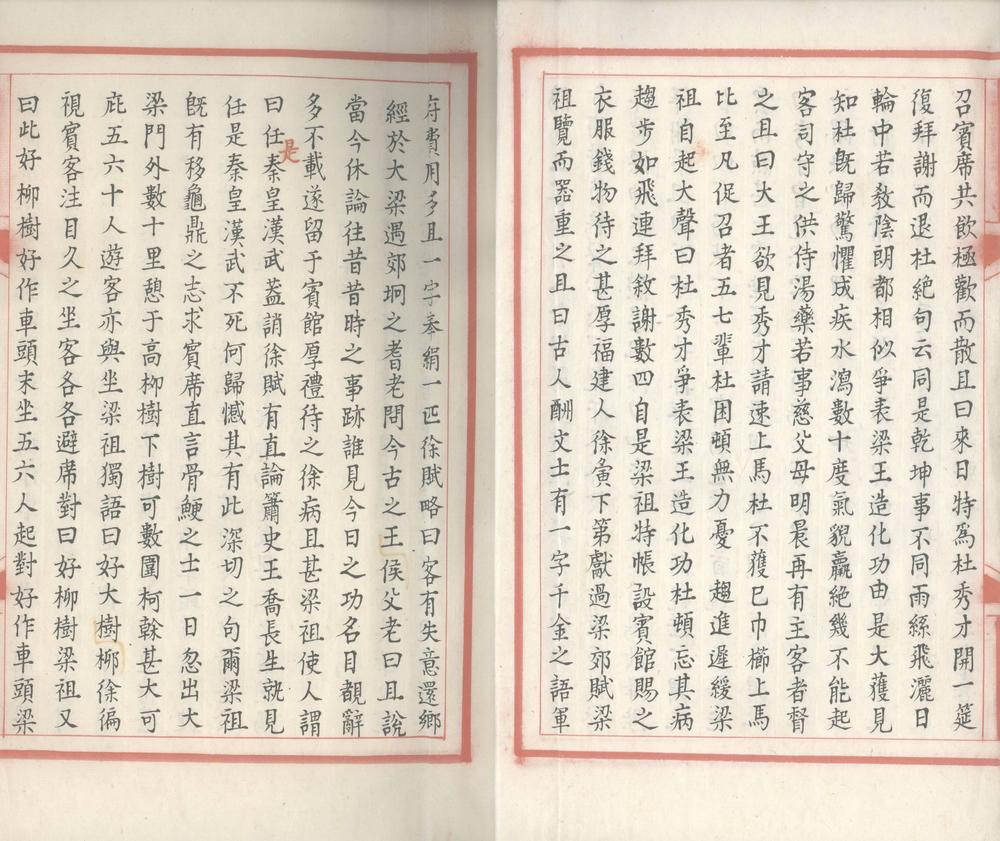 召賓席共飲極歡而散且曰來日特爲杜秀才開一筵
復拜謝而退杜絕句云同是乾坤事不同雨絲飛灑日
輪中若教陰朗都相似爭表梁王造化功由是大獲見
知杜旣歸驚懼成疾水瀉數十度氣貌羸絕幾不能起
客司守之供侍湯藥若事慈父母明晨再有主客者督
之且曰大王欲見秀才請速上馬杜不獲巳巾櫛上馬
比至凡促召者五七輩杜困頓無力憂 趨進遲緩梁
祖自起大聲曰杜秀才爭表梁王造化功杜頓忘其病
趨步如飛連拜敘謝數四自是梁祖特帳設賓館賜之
衣服錢物待之甚厚福建人徐夤下第獻過梁郊賦梁
祖覽而器重之且曰古人酬文士有一字千金之語軍
府費用多且一字奉絹一匹徐賦略曰客有失意還鄉
經於大梁遇郊坰之耆老問今古之王侯父老曰且說
當今休論往昔昔時之事跡誰見今日之功名目覩辭
多不載遂留于賓館厚禮待之徐病且甚梁祖使人謂
曰任是秦皇漢武葢誚徐賦有直論簫史王喬長生孰見
任是秦皇漢武不死何歸憾其有此深切之句爾梁祖
旣有移龜鼎之志求賓席直言骨鯁之士一日忽出大
梁門外數十里憩于高柳樹下樹可數圍柯榦甚大可
庇五六十人遊客亦與坐梁祖獨語曰好大樹栁徐徧
視賓客注目久之坐客各各避席對曰好柳樹梁祖又
曰此好柳樹好作車頭末坐五六人起對好作車頭梁